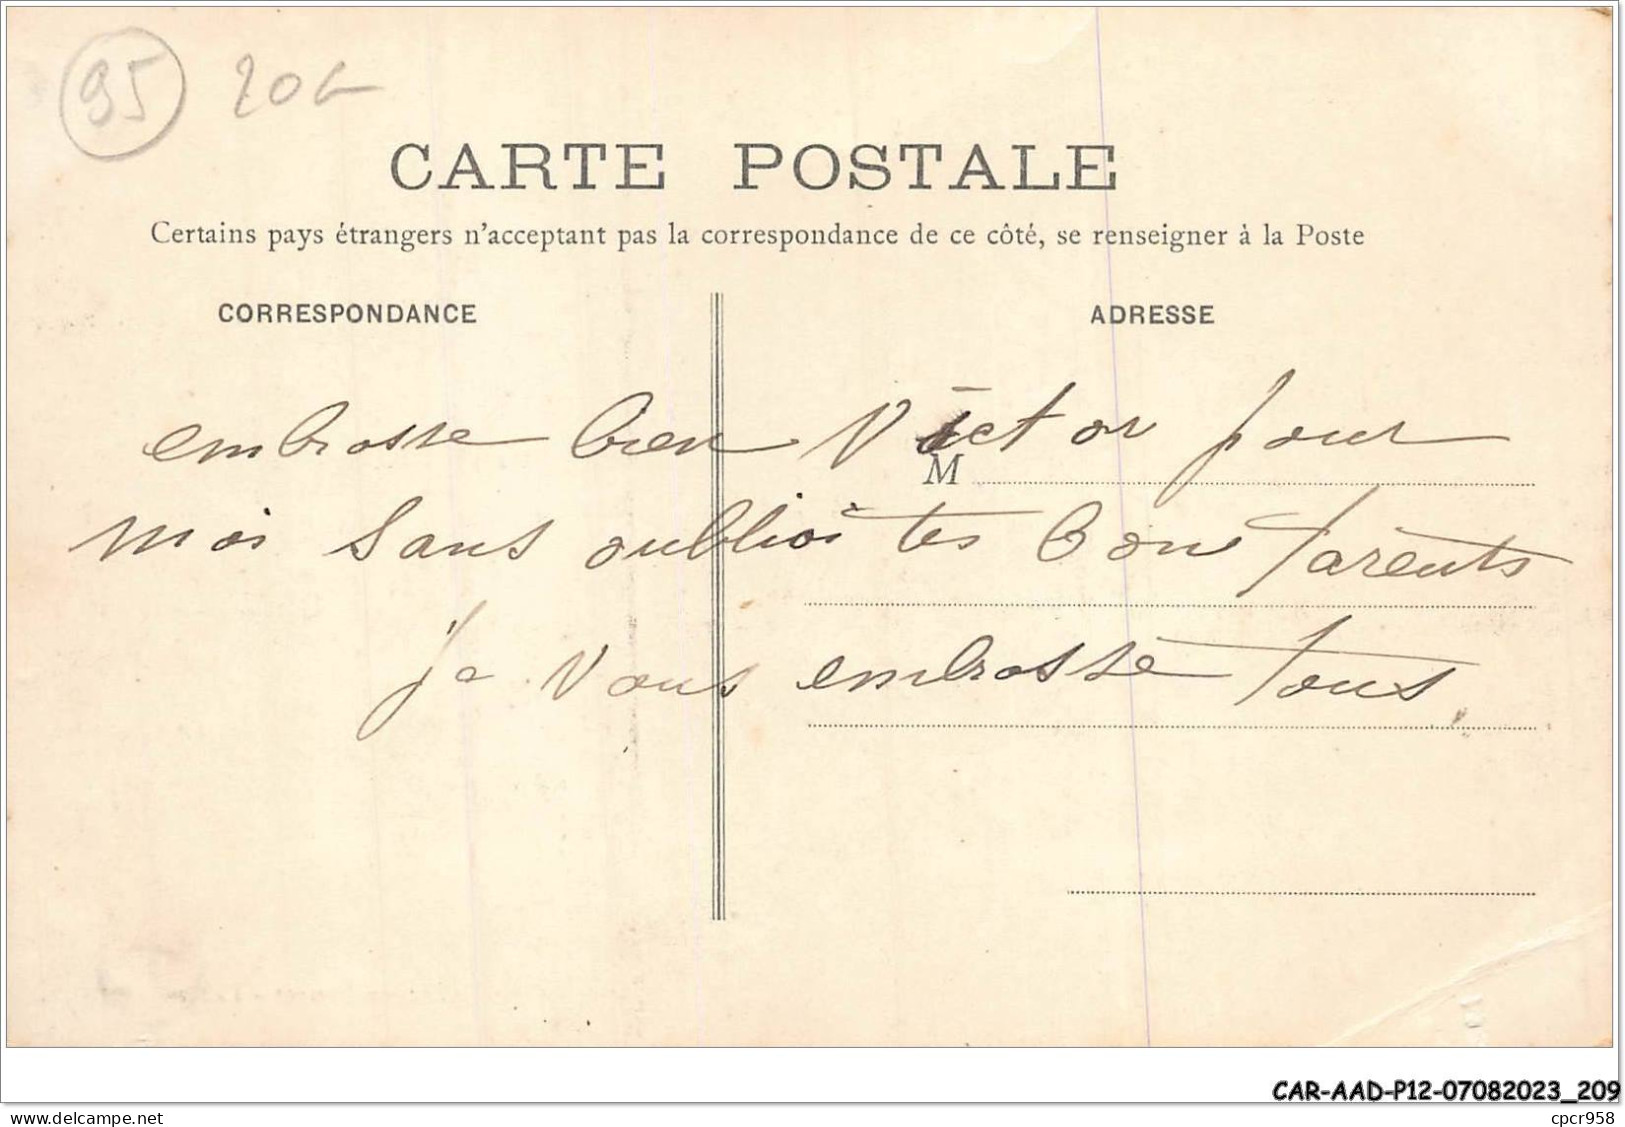 95 20f
CARTE POSTALE
Certains pays étrangers n'acceptant pas la correspondance de ce côté, se renseigner à la Poste
CORRESPONDANCE
ADRESSE
embrasse bien Victor pour
M
moi sans oublioi tes bons Parents
je vous embrasse tous.
CAR-AAD-P12-07082023_209
www.delcampe.net
cpcr958